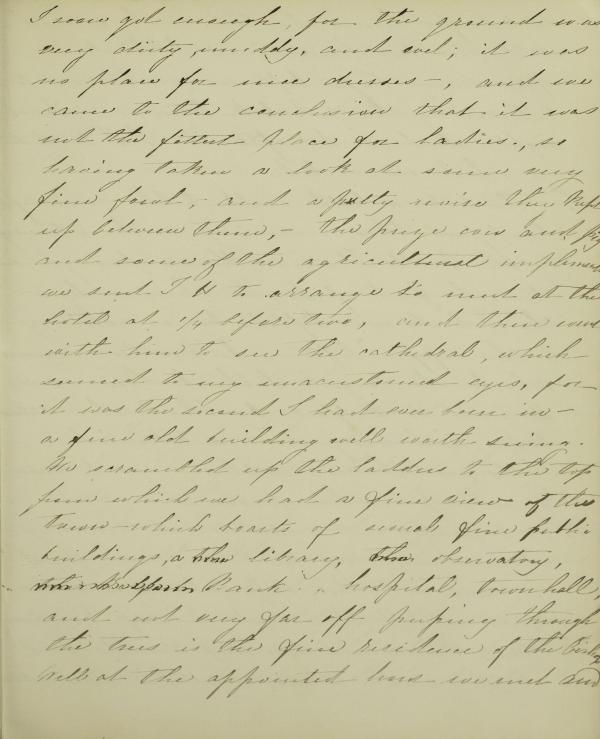 I soon got enough, for the ground was
very dirty, muddy, and wet; it was
no place for nice dresses -, and we
came to the conclusion that it was
not the fittest place for ladies., so
having taken a look at some very
fine fowl, - and a pretty noise they kept
up between them, - the prize cow and pig
and some of the agricultural implements
we sent T H to arrange to meet at the
hotel at 1/4 before two, and then went
with him to see the cathedral, which
seemed to my unacustomed eyes, for
it was the second I had ever been in -
a fine old building well worth seeing.
We scrambled up the ladders to the top
from which we had a fine view of the
town - which boasts of several fine public
buildings, a library, observatory,
Bank a hospital, townhall,
and not very far off peeping through
the trees is the fine residence of the
Well at the appointed hour we met and